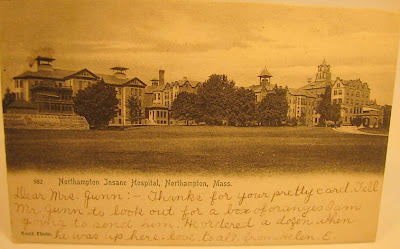 562 Northampton Insane Hospital, Northampton, Mass.
Dear Mrs. Gunn:- Thanks for your pretty card. Tell
Mr. Gunn to look out for a box of oranges I am
going to send him. He ordered a dozen when
he was up here. Love to all from Helen E.